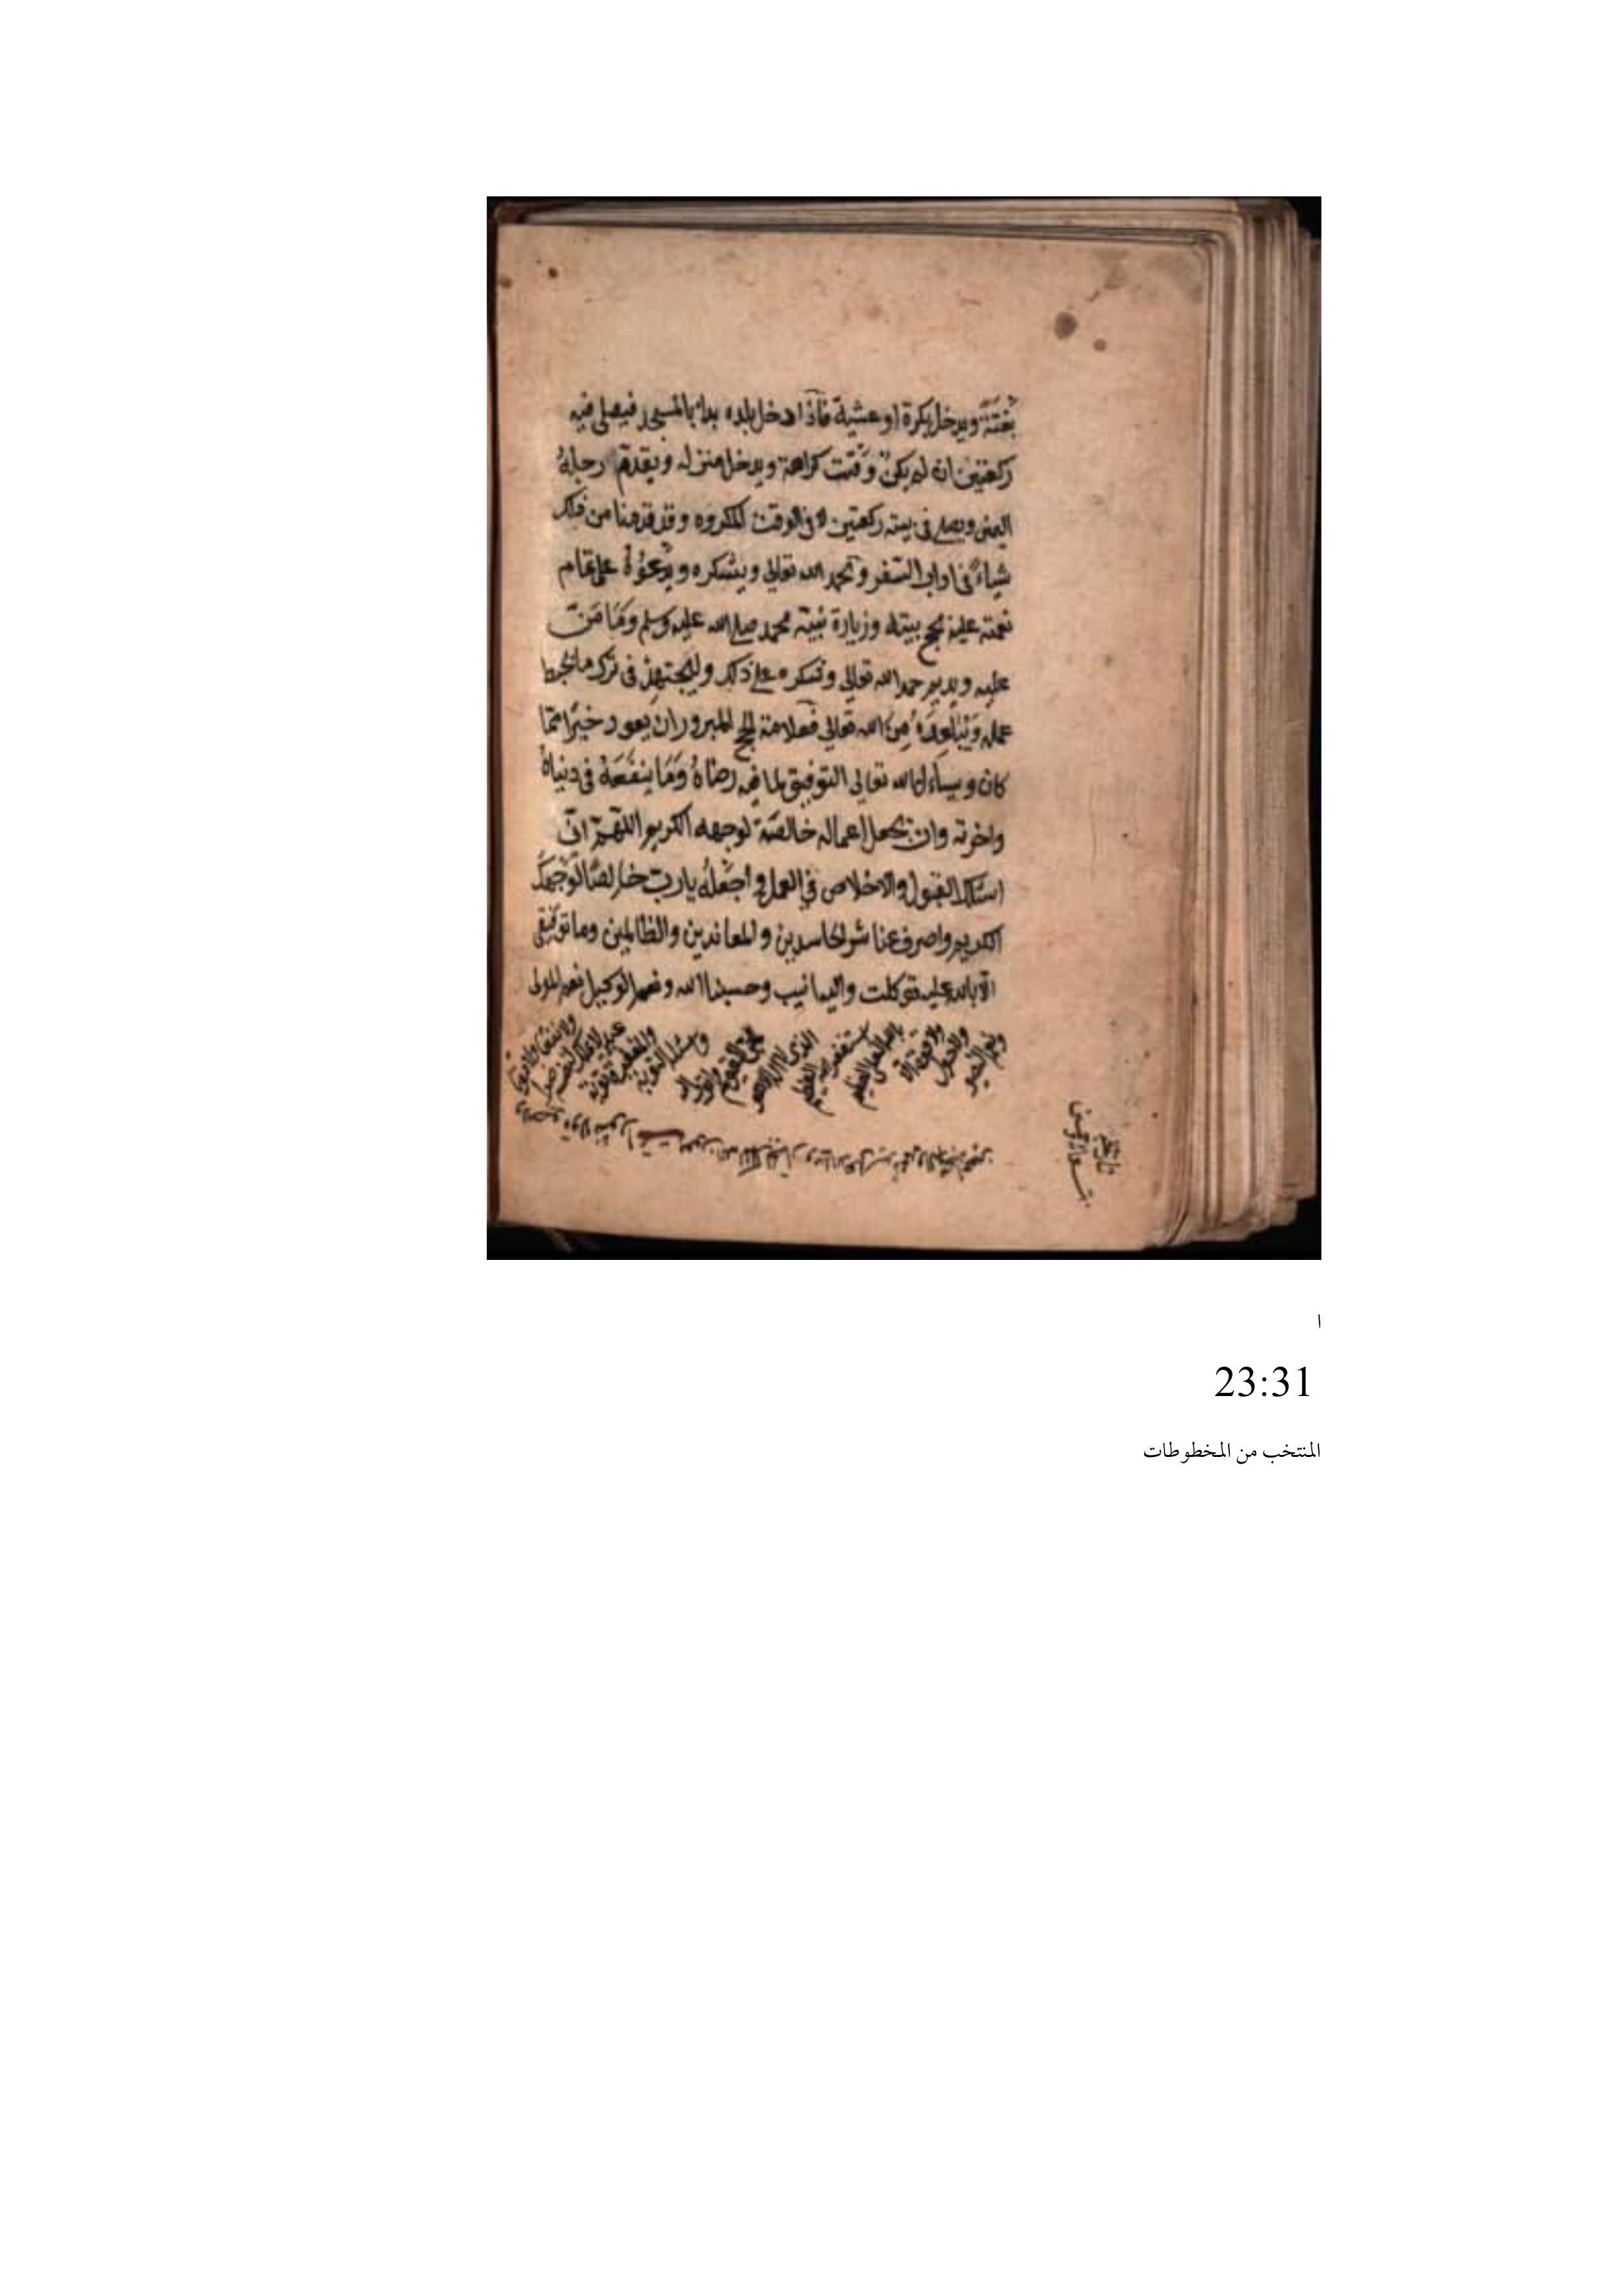 بَغْتَةً ويدخل بكرة او عشية فاذا دخل بلده بداء بالمسجد فيصلى فيه
ركعتين ان لم يكن وقت كراهة ويدخل منزله ويقدم رجله
اليمنى ويصلى فى بيته ركعتين لا فى الوقت المكروه وقد قدمنا من ذلك
شياءً فى اداب السفر ويحمد الله تعالى ويشكره ويدعوهُ على تمام
نعمته عليه بحج بيته وزيارة نبيّه محمد صلى الله عليه وسلم وَمَا مَنّ
عليه ويديم حمد الله تعالى وشكره على ذلك وليجتهد فى ترك ما يحبط
عمله وَيُبَاعِدَهُ مِنَ الله تعالى فعلامة الحج المبرور ان يعود خيرًا ممّا
كان ويساءل الله تعالى التوفيق لما فيه رضاهُ وَمَا ينفَعَهُ فى دنياهُ
واخرته وان يجعل اعماله خالصَة لوجهه الكريم اللّهمّ انّى
اسئلك القبول والاخلاص في العمل واجْعَلْهُ يا ربّ خالصًا لوَجْهِكَ
الكريم واصرف عنا شر الحاسدين والمعاندين والظالمين وما توفيقى
الا بالله عليه توكلت واليه انيب وحسبنا الله ونعم الوكيل نعم المولى
ونعم النصير
ولا حول
ولا قوة الا
بالله العلى العظيم
استغفر الله العظيم
الذى لا اله الا هو
الحى القيوم واتوب اليه
واسئله التوبة
والمغفرة توبة
عبد
ا
23:31
المنتخب من المخطوطات